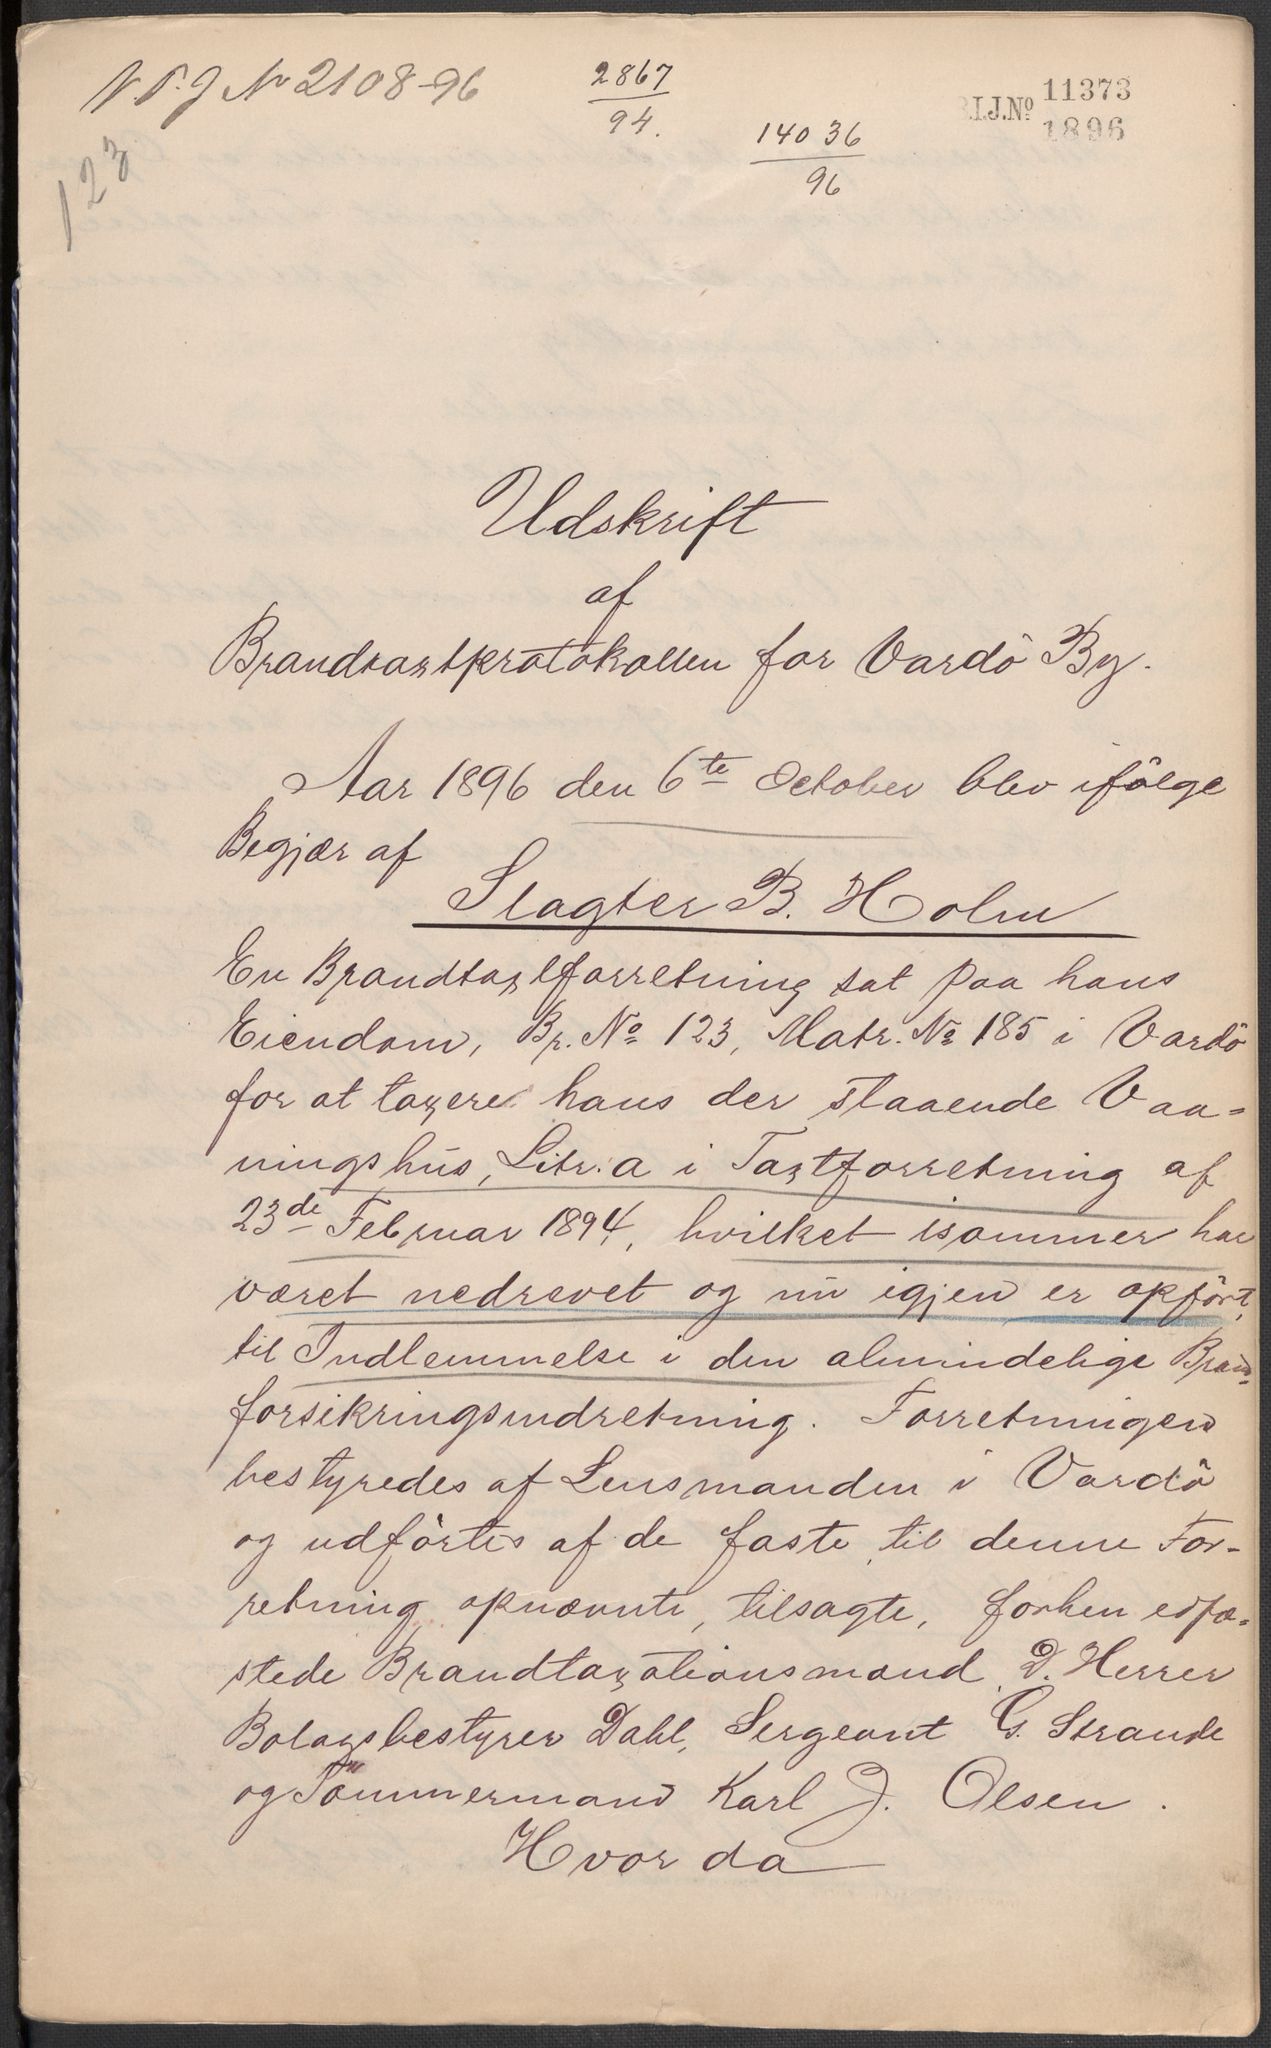 V.P.J No 2108-96
2867
94.
140 36
96
B.I.J.No 11373
1896
123
Udskrift
af
Brandtaxtprotokollen for Vardö By.
Aar 1896 den 6te October blev ifölge
Begjær af
Slagter B. Holm
En Brandtaxtforretning sat paa hans
Eiendom, Br. No 123, Matr. No 185 i Vardö
for at taxere hans der staaende Vaa-
ningshus, Litr. a i Taxtforretning af
23de Februar 1894, hvilket isommer har
været nedrevet og nu igjen er opfört,
til Indlemmelse i den almindelige Brand-
forsikringsindretning. Forretningen
bestyredes af Lensmanden i Vardö
og udförtes af de faste, til denne For-
retning opnævnte, tilsagte, forhen edfæ-
stede Brandtaxationsmænd, D. Herrer
Bolagsbestyrer Dahl, Sergeant G. Strande
og Tömmermand Karl J. Olsen.
Hvor da